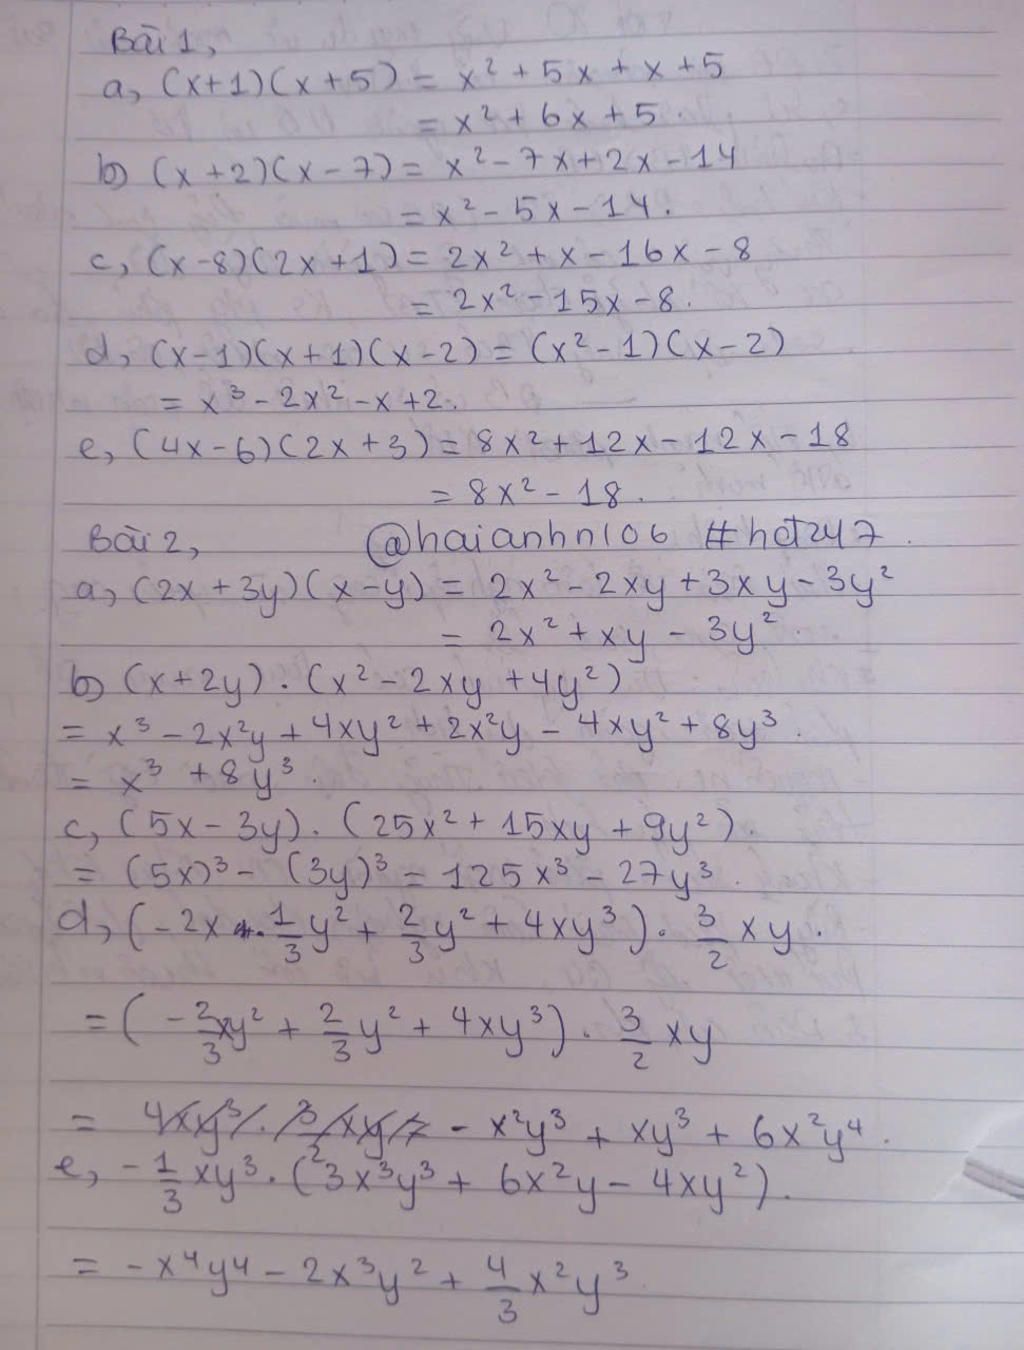 Bài 1,
a, (x+1)(x+5) = x² + 5x + x + 5
= x² + 6x + 5.
b) (x+2)(x-7) = x² - 7x + 2x - 14
= x² - 5x - 14.
c, (x-8)(2x+1) = 2x² + x - 16x - 8
= 2x² - 15x - 8.
d, (x-1)(x+1)(x-2) = (x²-1)(x-2)
= x³ - 2x² - x + 2.
e, (4x-6)(2x+3) = 8x² + 12x - 12x - 18
= 8x² - 18.
Bài 2, @haianhn106 #hdt247.
a, (2x+3y)(x-y) = 2x² - 2xy + 3xy - 3y²
= 2x² + xy - 3y².
b) (x+2y).(x² - 2xy + 4y²)
= x³ - 2x²y + 4xy² + 2x²y - 4xy² + 8y³.
= x³ + 8y³.
c, (5x-3y).(25x² + 15xy + 9y²).
= (5x)³ - (3y)³ = 125x³ - 27y³.
d, (-2x . 1/3 y² + 2/3 y² + 4xy³). 3/2 xy.
= (-2/3 xy² + 2/3 y² + 4xy³). 3/2 xy
= - x²y³ + xy³ + 6x²y⁴.
e, -1/3 xy³.(3x³y³ + 6x²y - 4xy²).
= -x⁴y⁴ - 2x³y² + 4/3 x²y³.